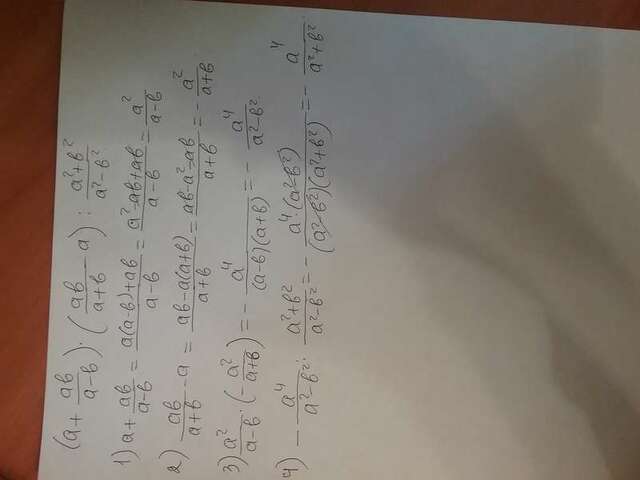 (a + ab/(a-b)) · (ab/(a+b) - a) : (a²+b²)/(a²-b²)
1) a + ab/(a-b) = (a(a-b)+ab)/(a-b) = (a²-ab+ab)/(a-b) = a²/(a-b)
2) ab/(a+b) - a = (ab-a(a+b))/(a+b) = (ab-a²-ab)/(a+b) = - a²/(a+b)
3) a²/(a-b) · (- a²/(a+b)) = - a⁴/((a-b)(a+b)) = - a⁴/(a²-b²)
4) - a⁴/(a²-b²) : (a²+b²)/(a²-b²) = - (a⁴·(a²-b²))/((a²-b²)(a²+b²)) = - a⁴/(a²+b²).